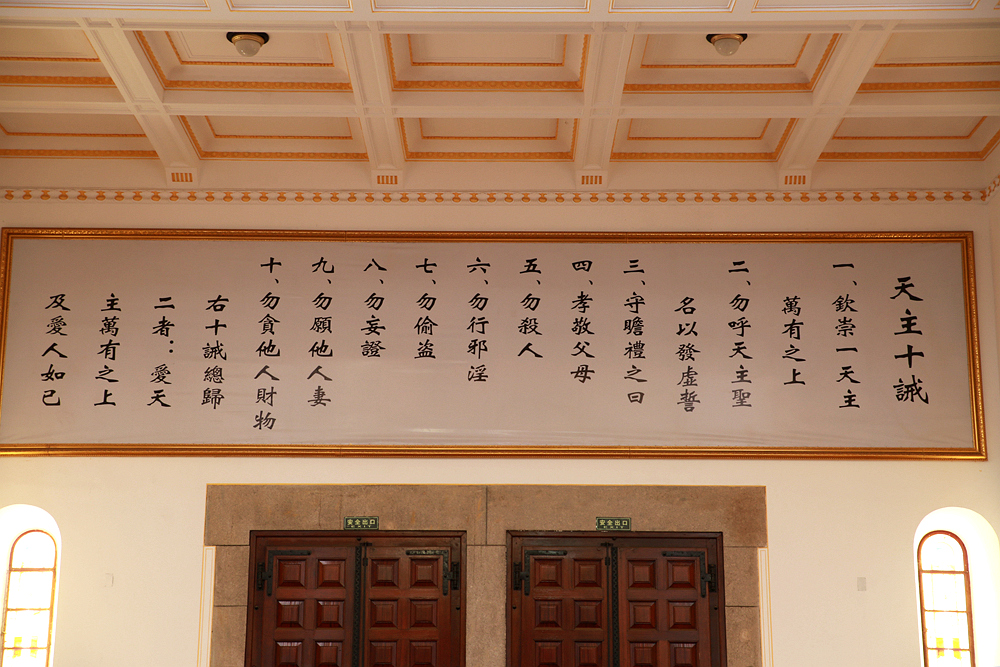 天主十誡
一、欽崇一天主
萬有之上
二、勿呼天主聖
名以發虛誓
三、守瞻禮之日
四、孝敬父母
五、勿殺人
六、勿行邪淫
七、勿偷盜
八、勿妄證
九、勿願他人妻
十、勿貪他人財物
右十誡總歸
二者：愛天
主萬有之上
及愛人如己
安全出口
EXIT
安全出口
EXIT